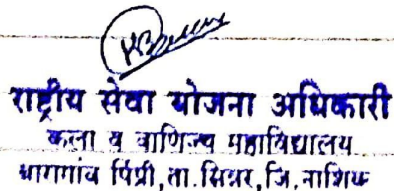 राष्ट्रीय सेवा योजना अधिकारी
कला व वाणिज्य महाविद्यालय
पिंप्री, ता. सिन्नर, जि. नाशिक